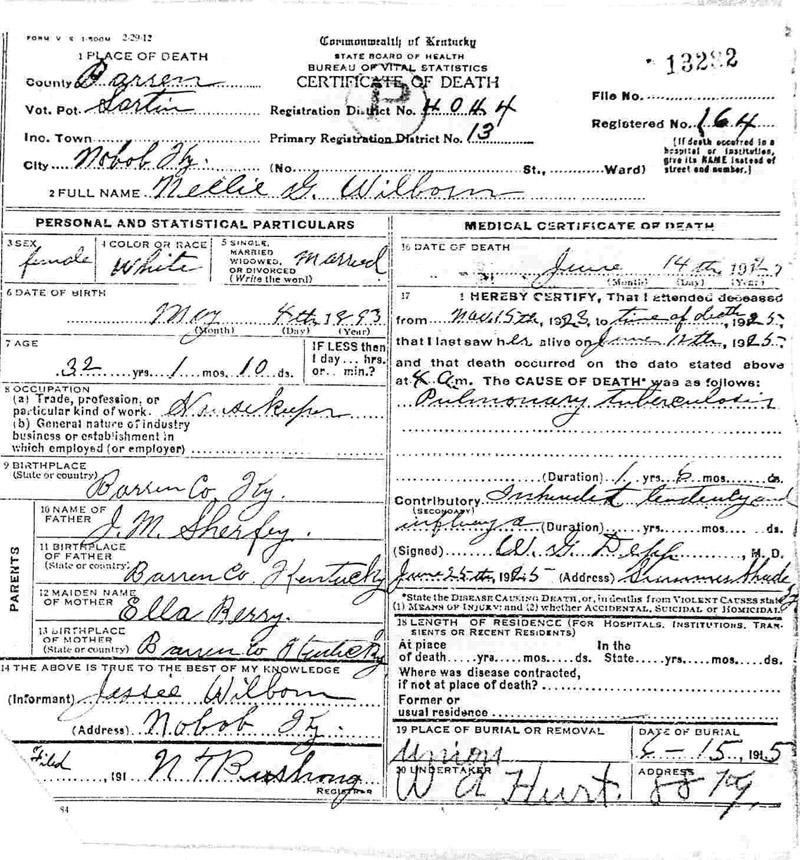 FORM V. S. 1-500M 2-29-12
Commonwealth of Kentucky
STATE BOARD OF HEALTH
BUREAU OF VITAL STATISTICS
CERTIFICATE OF DEATH
13282
1 PLACE OF DEATH
County Barren
Vot. Pct. Sartin
Registration District No. 4044
File No.
Inc. Town
Primary Registration District No. 13
Registered No. 164
City Nobob Ky. (No. St., Ward)
(If death occurred in a hospital or institution, give its NAME instead of street and number.)
2 FULL NAME Nellie G. Wilborn
PERSONAL AND STATISTICAL PARTICULARS
3 SEX female
4 COLOR OR RACE White
5 SINGLE, MARRIED WIDOWED, OR DIVORCED (Write the word) Married
6 DATE OF BIRTH
May 4th 1893
(Month) (Day) (Year)
7 AGE
32 yrs. 1 mos. 10 ds.
IF LESS than 1 day... hrs. or... min.?
8 OCCUPATION
(a) Trade, profession, or particular kind of work. Housekeeper
(b) General nature of industry
business or establishment in
which employed (or employer)
9 BIRTHPLACE
(State or country)
Barren Co. Ky.
PARENTS
10 NAME OF FATHER J. M. Sherfey.
11 BIRTHPLACE OF FATHER (State or country) Barren Co. Kentucky
12 MAIDEN NAME OF MOTHER Ella Berry.
13 BIRTHPLACE OF MOTHER (State or country) Barren Co Kentucky
14 THE ABOVE IS TRUE TO THE BEST OF MY KNOWLEDGE
(Informant) Jessee Wilborn
(Address) Nobob Ky.
Filed , 191 N T Bushong
REGISTRAR
84
MEDICAL CERTIFICATE OF DEATH
16 DATE OF DEATH
June 14th 192
(Month) (Day) (Year)
17 I HEREBY CERTIFY, That I attended deceased
from Nov. 15th, 1923, to time of death, 1925.
that I last saw her alive on June 12th, 1925.
and that death occurred on the date stated above
at 4 a.m. The CAUSE OF DEATH* was as follows:
Pulmonary tuberculosis
(Duration) 1 yrs. 6 mos. ds.
Contributory Inherited tendency and
(SECONDARY)
influenza (Duration) yrs. mos. ds.
(Signed) W. G. Depp, M. D.
June 25th, 1925 (Address) Summer Shade Ky
*State the DISEASE CAUSING DEATH, or, in deaths from VIOLENT CAUSES state
(1) MEANS OF INJURY; and (2) whether ACCIDENTAL, SUICIDAL OR HOMICIDAL.
18 LENGTH OF RESIDENCE (FOR HOSPITALS, INSTITUTIONS, TRANSIENTS OR RECENT RESIDENTS)
At place of death yrs. mos. ds. In the State yrs. mos. ds.
Where was disease contracted,
if not at place of death?
Former or
usual residence
19 PLACE OF BURIAL OR REMOVAL
Union
DATE OF BURIAL
6-15, 1915
20 UNDERTAKER
W A Hurt.
ADDRESS
SS Ky.